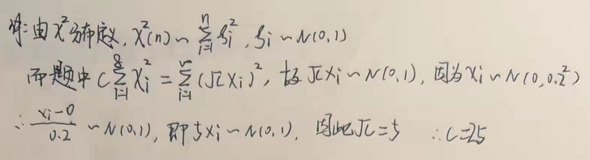 解:由χ²分布定义, χ²(n) ~ ∑_{i=1}^{n} ξ_i², ξ_i ~ N(0,1)
而题中 C∑_{i=1}^{8} X_i² = ∑_{i=1}^{n} (√C X_i)², 故 √C X_i ~ N(0,1), 因为 X_i ~ N(0, 0.2²)
∴ (X_i-0)/0.2 ~ N(0,1), 即 5X_i ~ N(0,1), 因此 √C = 5 ∴ C=25